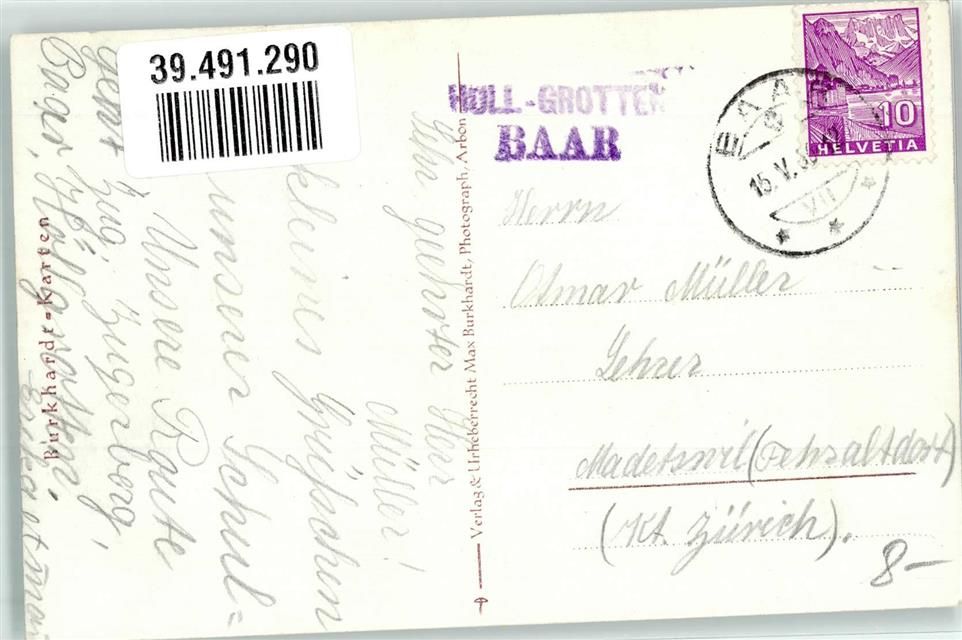 39.491.290
HÖLL-GROTTEN
BAAR
BAAR
15.V.3
VII
10
HELVETIA
Herrn
Osmar Müller
Lehrer
Madetswil (Fehraltdorf)
(Kt. Zürich).
8-
Verlag & Urheberrecht Max Burkhardt, Photograph, Arbon
Burkhardt-Karten
geehrter Herr
Müller!
kleines Grüsschen
unserer Schul=
Unsere Route
Zug, Zugerberg,
Baar, Höllgrotten